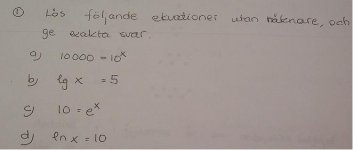 ① Lös följande ekvationer utan räknare, och
ge exakta svar.
a) 10000 = 10^x
b) lg x = 5
c) 10 = e^x
d) ln x = 10